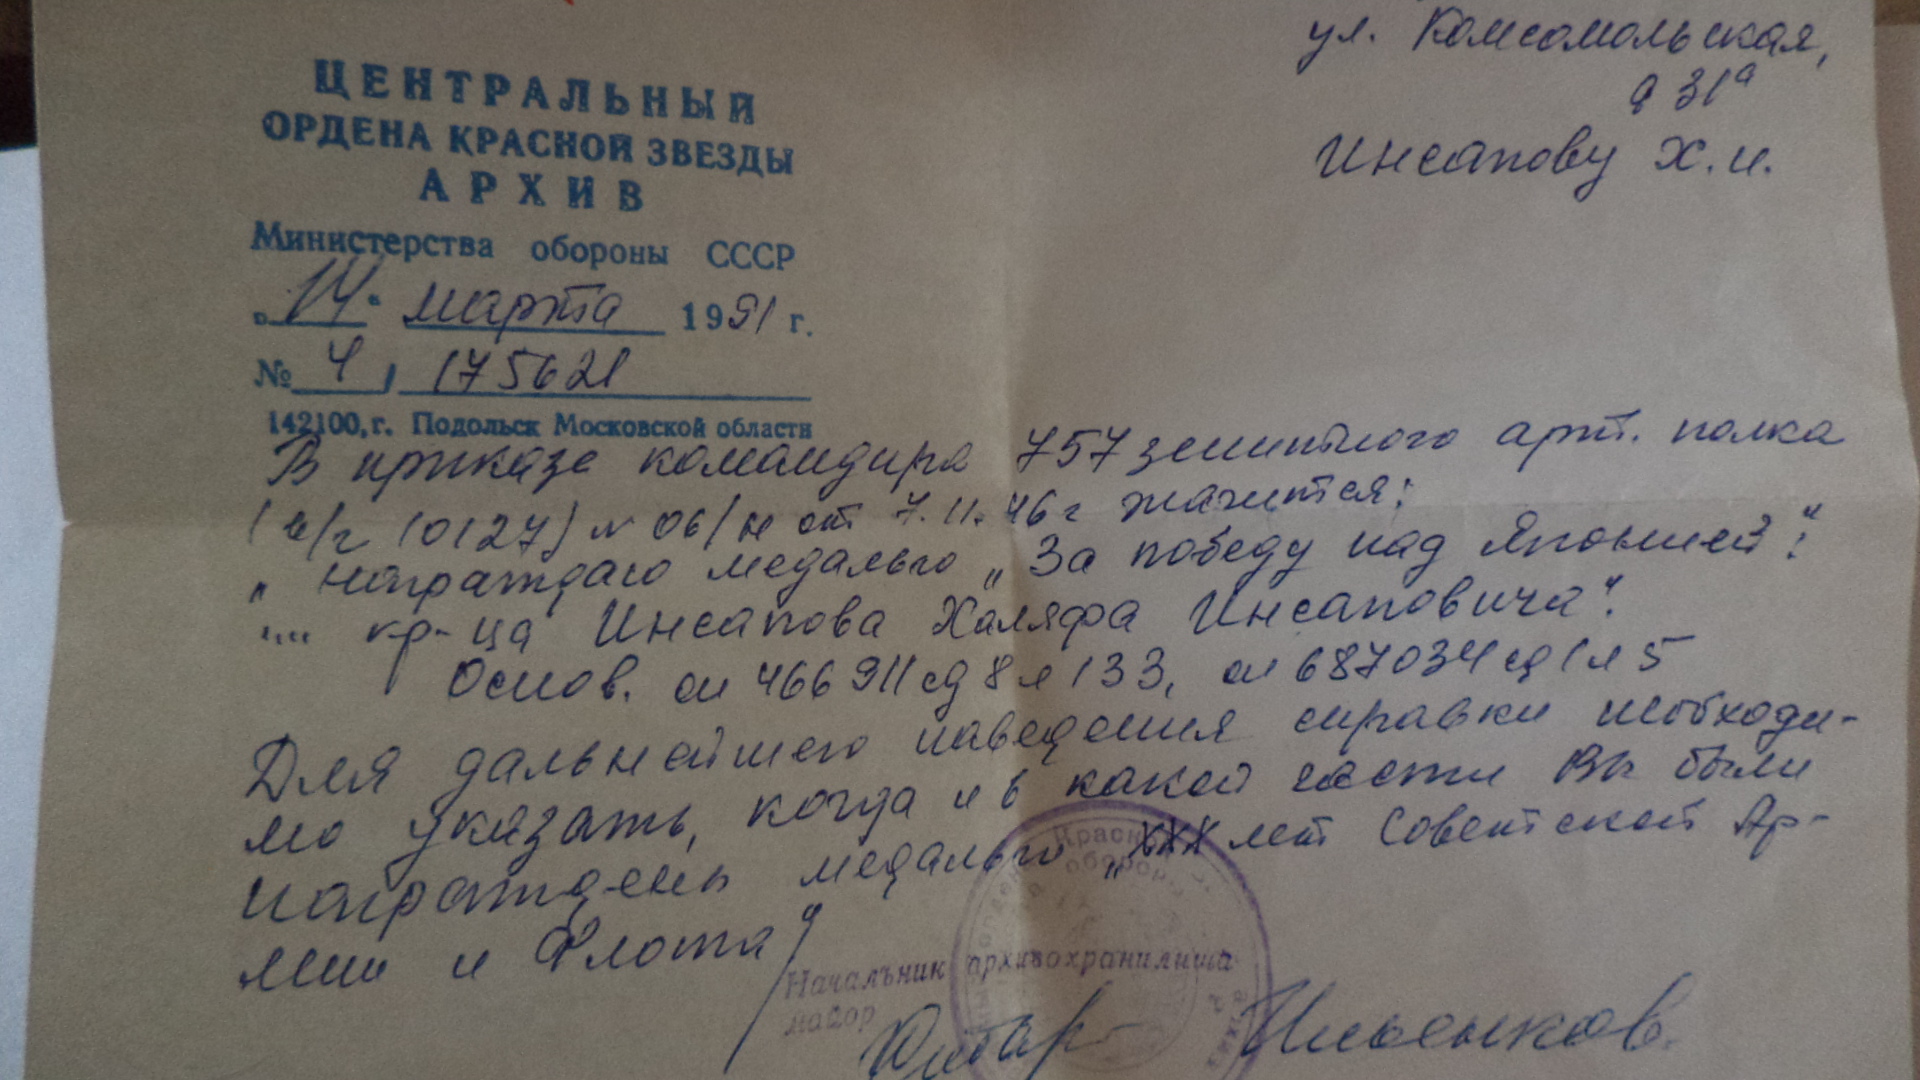 ул. Комсомольская,
д 31а
Инсапову Х.И.
ЦЕНТРАЛЬНЫЙ
ОРДЕНА КРАСНОЙ ЗВЕЗДЫ
АРХИВ
Министерства обороны СССР
„14“ марта 1991 г.
№ 4 / 175621
142100, г. Подольск Московской области
В приказе командира 757 зенитного арт. полка
(в/ч 10127) № 06/н от 7.11.46 г значится:
„Награждаю медалью „За победу над Японией“:
"... кр-ца Инсапова Халяфа Инсаповича“.
Основ. оп 466911 сд 8 л 133, оп 687034 сд 1 л 5
Для дальнейшего наведения справки необходи-
мо указать, когда и в какой части Вы были
награждены медалью „ХХХ лет Советской Ар-
мии и Флота“
Начальник архивохранилища
майор
Ильенков